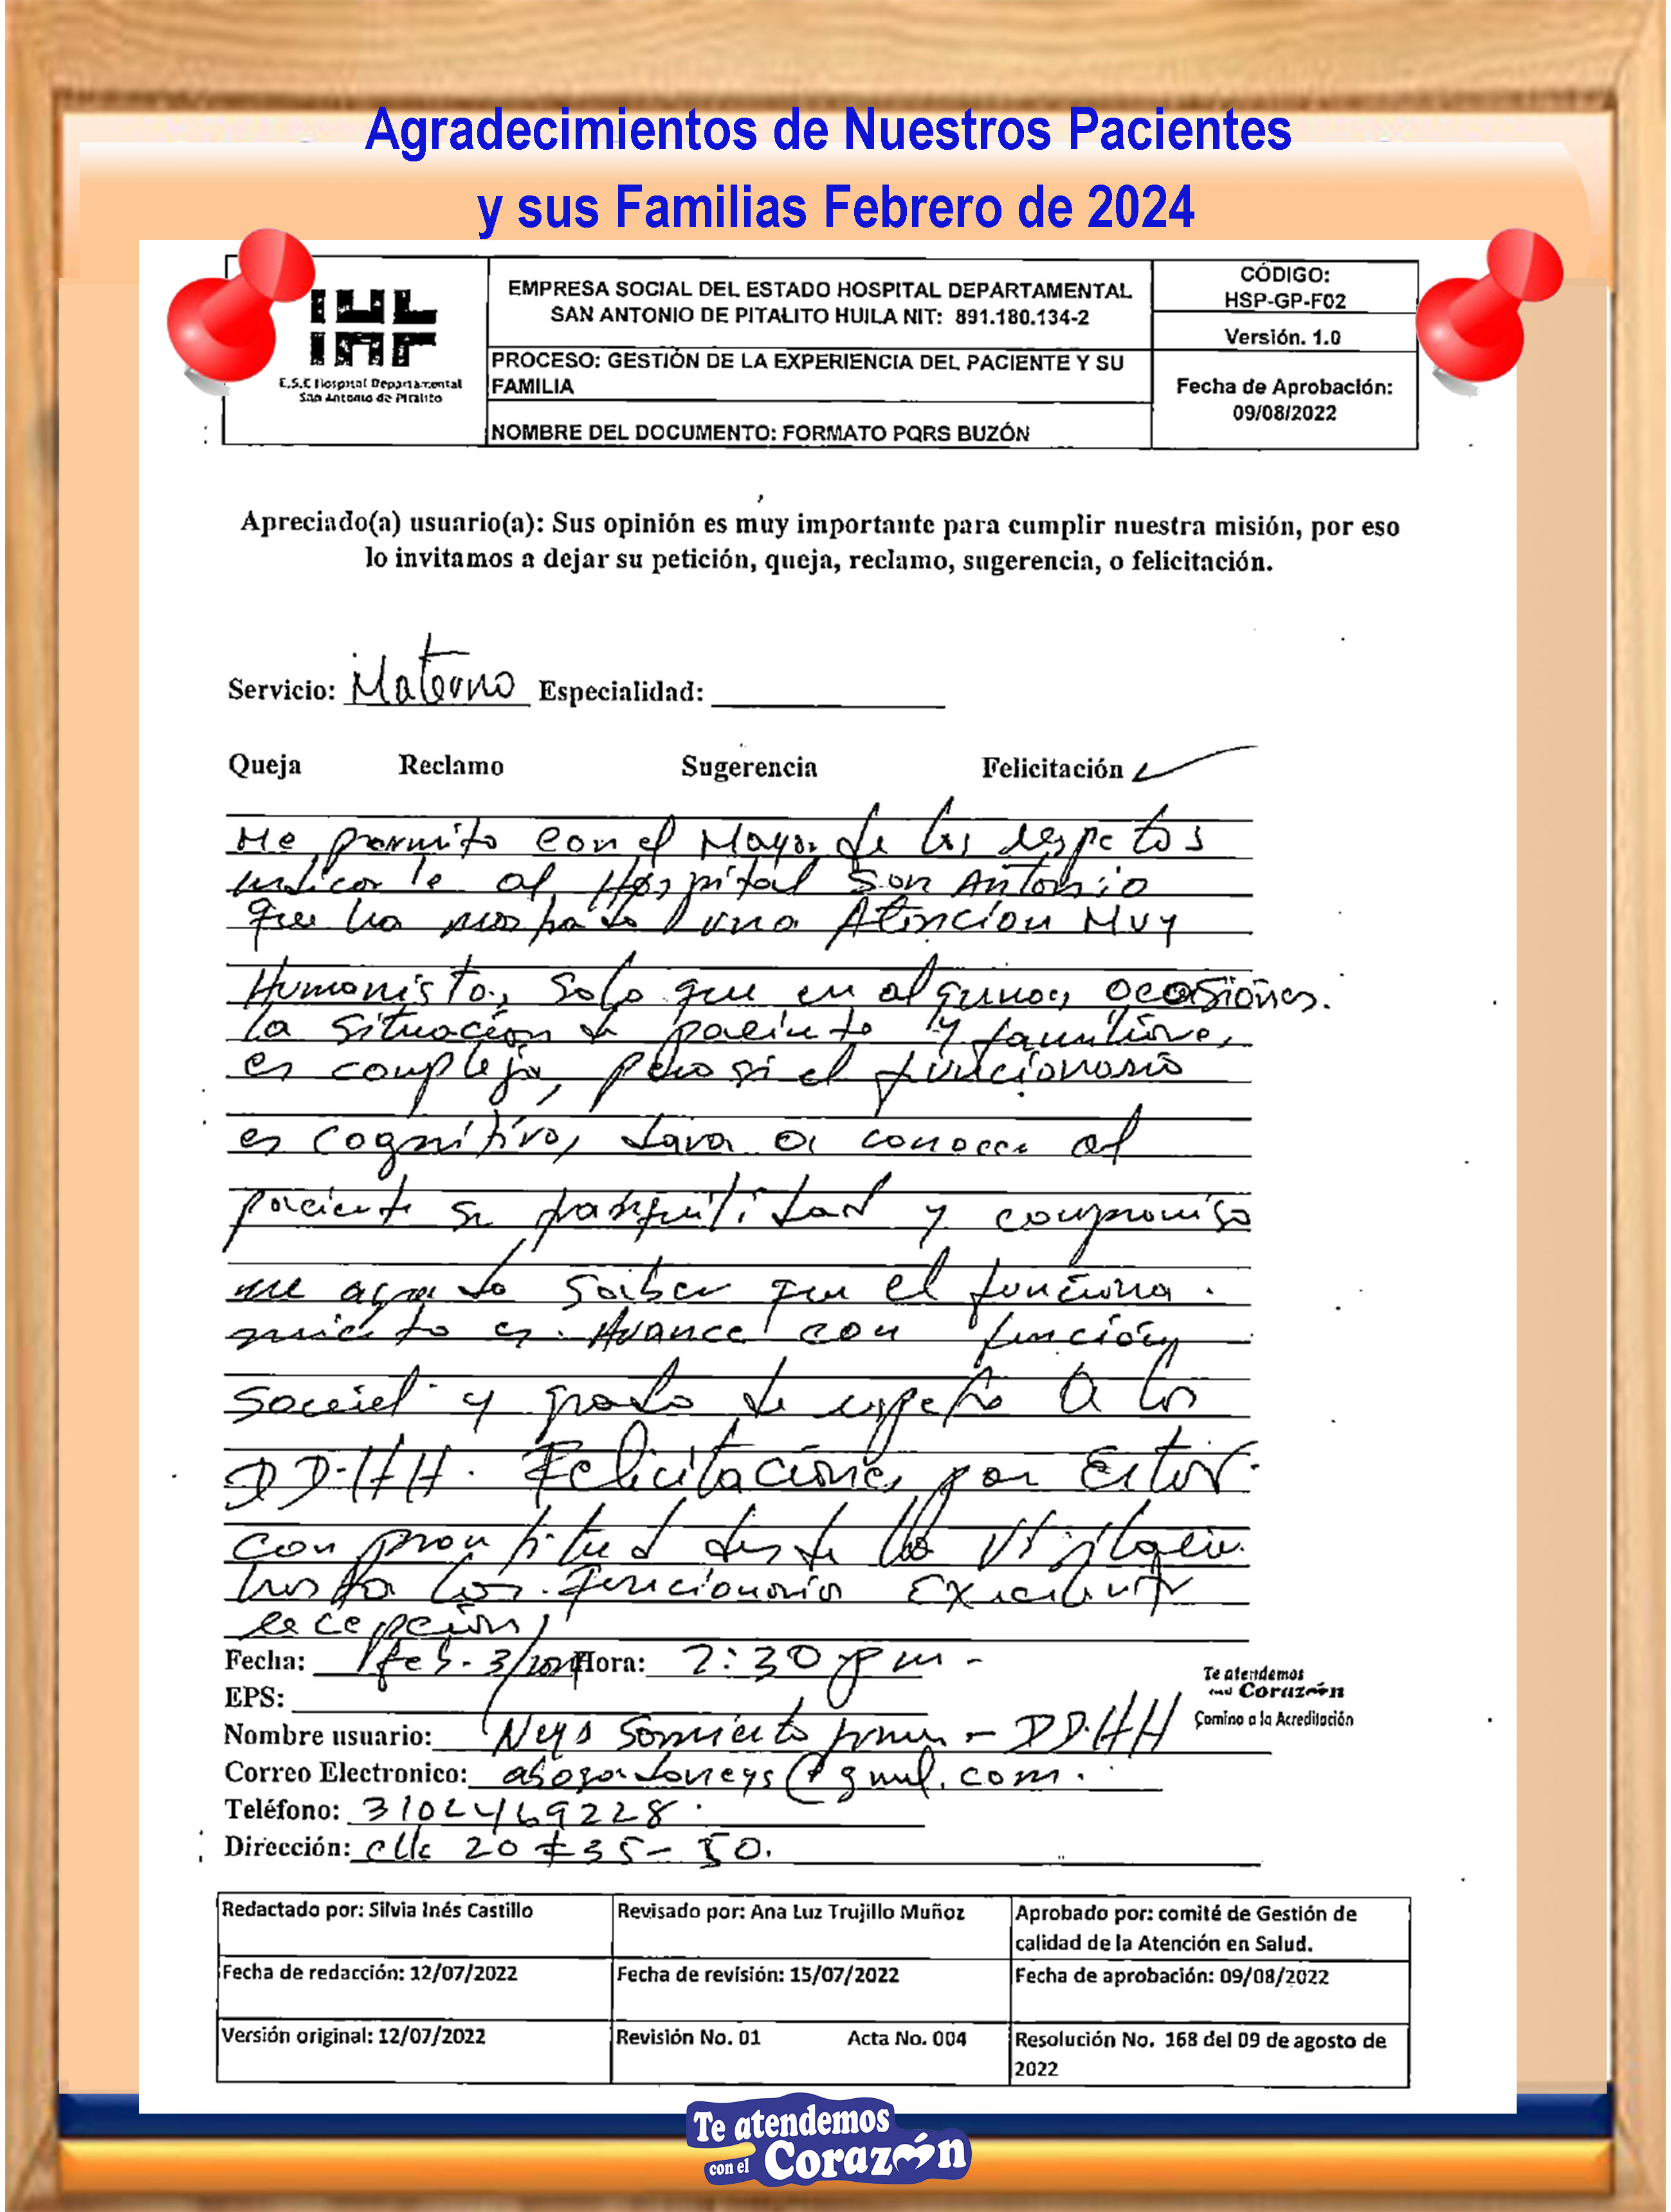 Agradecimientos de Nuestros Pacientes
y sus Familias Febrero de 2024
E.S.E Hospital Departamental
San Antonio de Pitalito
EMPRESA SOCIAL DEL ESTADO HOSPITAL DEPARTAMENTAL
SAN ANTONIO DE PITALITO HUILA NIT: 891.180.134-2
PROCESO: GESTIÓN DE LA EXPERIENCIA DEL PACIENTE Y SU
FAMILIA
NOMBRE DEL DOCUMENTO: FORMATO PQRS BUZÓN
CÓDIGO:
HSP-GP-F02
Versión. 1.0
Fecha de Aprobación:
09/08/2022
Apreciado(a) usuario(a): Sus opinión es muy importante para cumplir nuestra misión, por eso
lo invitamos a dejar su petición, queja, reclamo, sugerencia, o felicitación.
Servicio: Materno Especialidad:
Queja Reclamo Sugerencia Felicitación
Me permito con el Mayor de los respetos
indicarle al Hospital San Antonio
que ha mostrado una Atencion Muy
Humanista, solo que en algunas ocasiones.
la situación de paciente y familiares
es compleja, pero si el funcionario
es cognitivo, dara a conocer al
paciente su tranquilidad y compromiso
me agrado saber que el funciona.
miento es Avance con función
social y grado de respeto A los
DD.HH. Felicitaciones por Estar
con prontitud desde la Vigilancia
hasta los funcionarios
recepción
Fecha: feb-3/2024 Hora: 2:30 pm -
EPS:
Nombre usuario: Neys Sarmiento - DD.HH
Correo Electronico: abogadoneys@gmail.com.
Teléfono: 3102469228.
Dirección: clle 20 # 35-50.
Te atendemos
con el Corazón
Camino a la Acreditación
Redactado por: Silvia Inés Castillo
Revisado por: Ana Luz Trujillo Muñoz
Aprobado por: comité de Gestión de
calidad de la Atención en Salud.
Fecha de redacción: 12/07/2022
Fecha de revisión: 15/07/2022
Fecha de aprobación: 09/08/2022
Versión original: 12/07/2022
Revisión No. 01 Acta No. 004
Resolución No. 168 del 09 de agosto de
2022
Te atendemos
con el Corazón